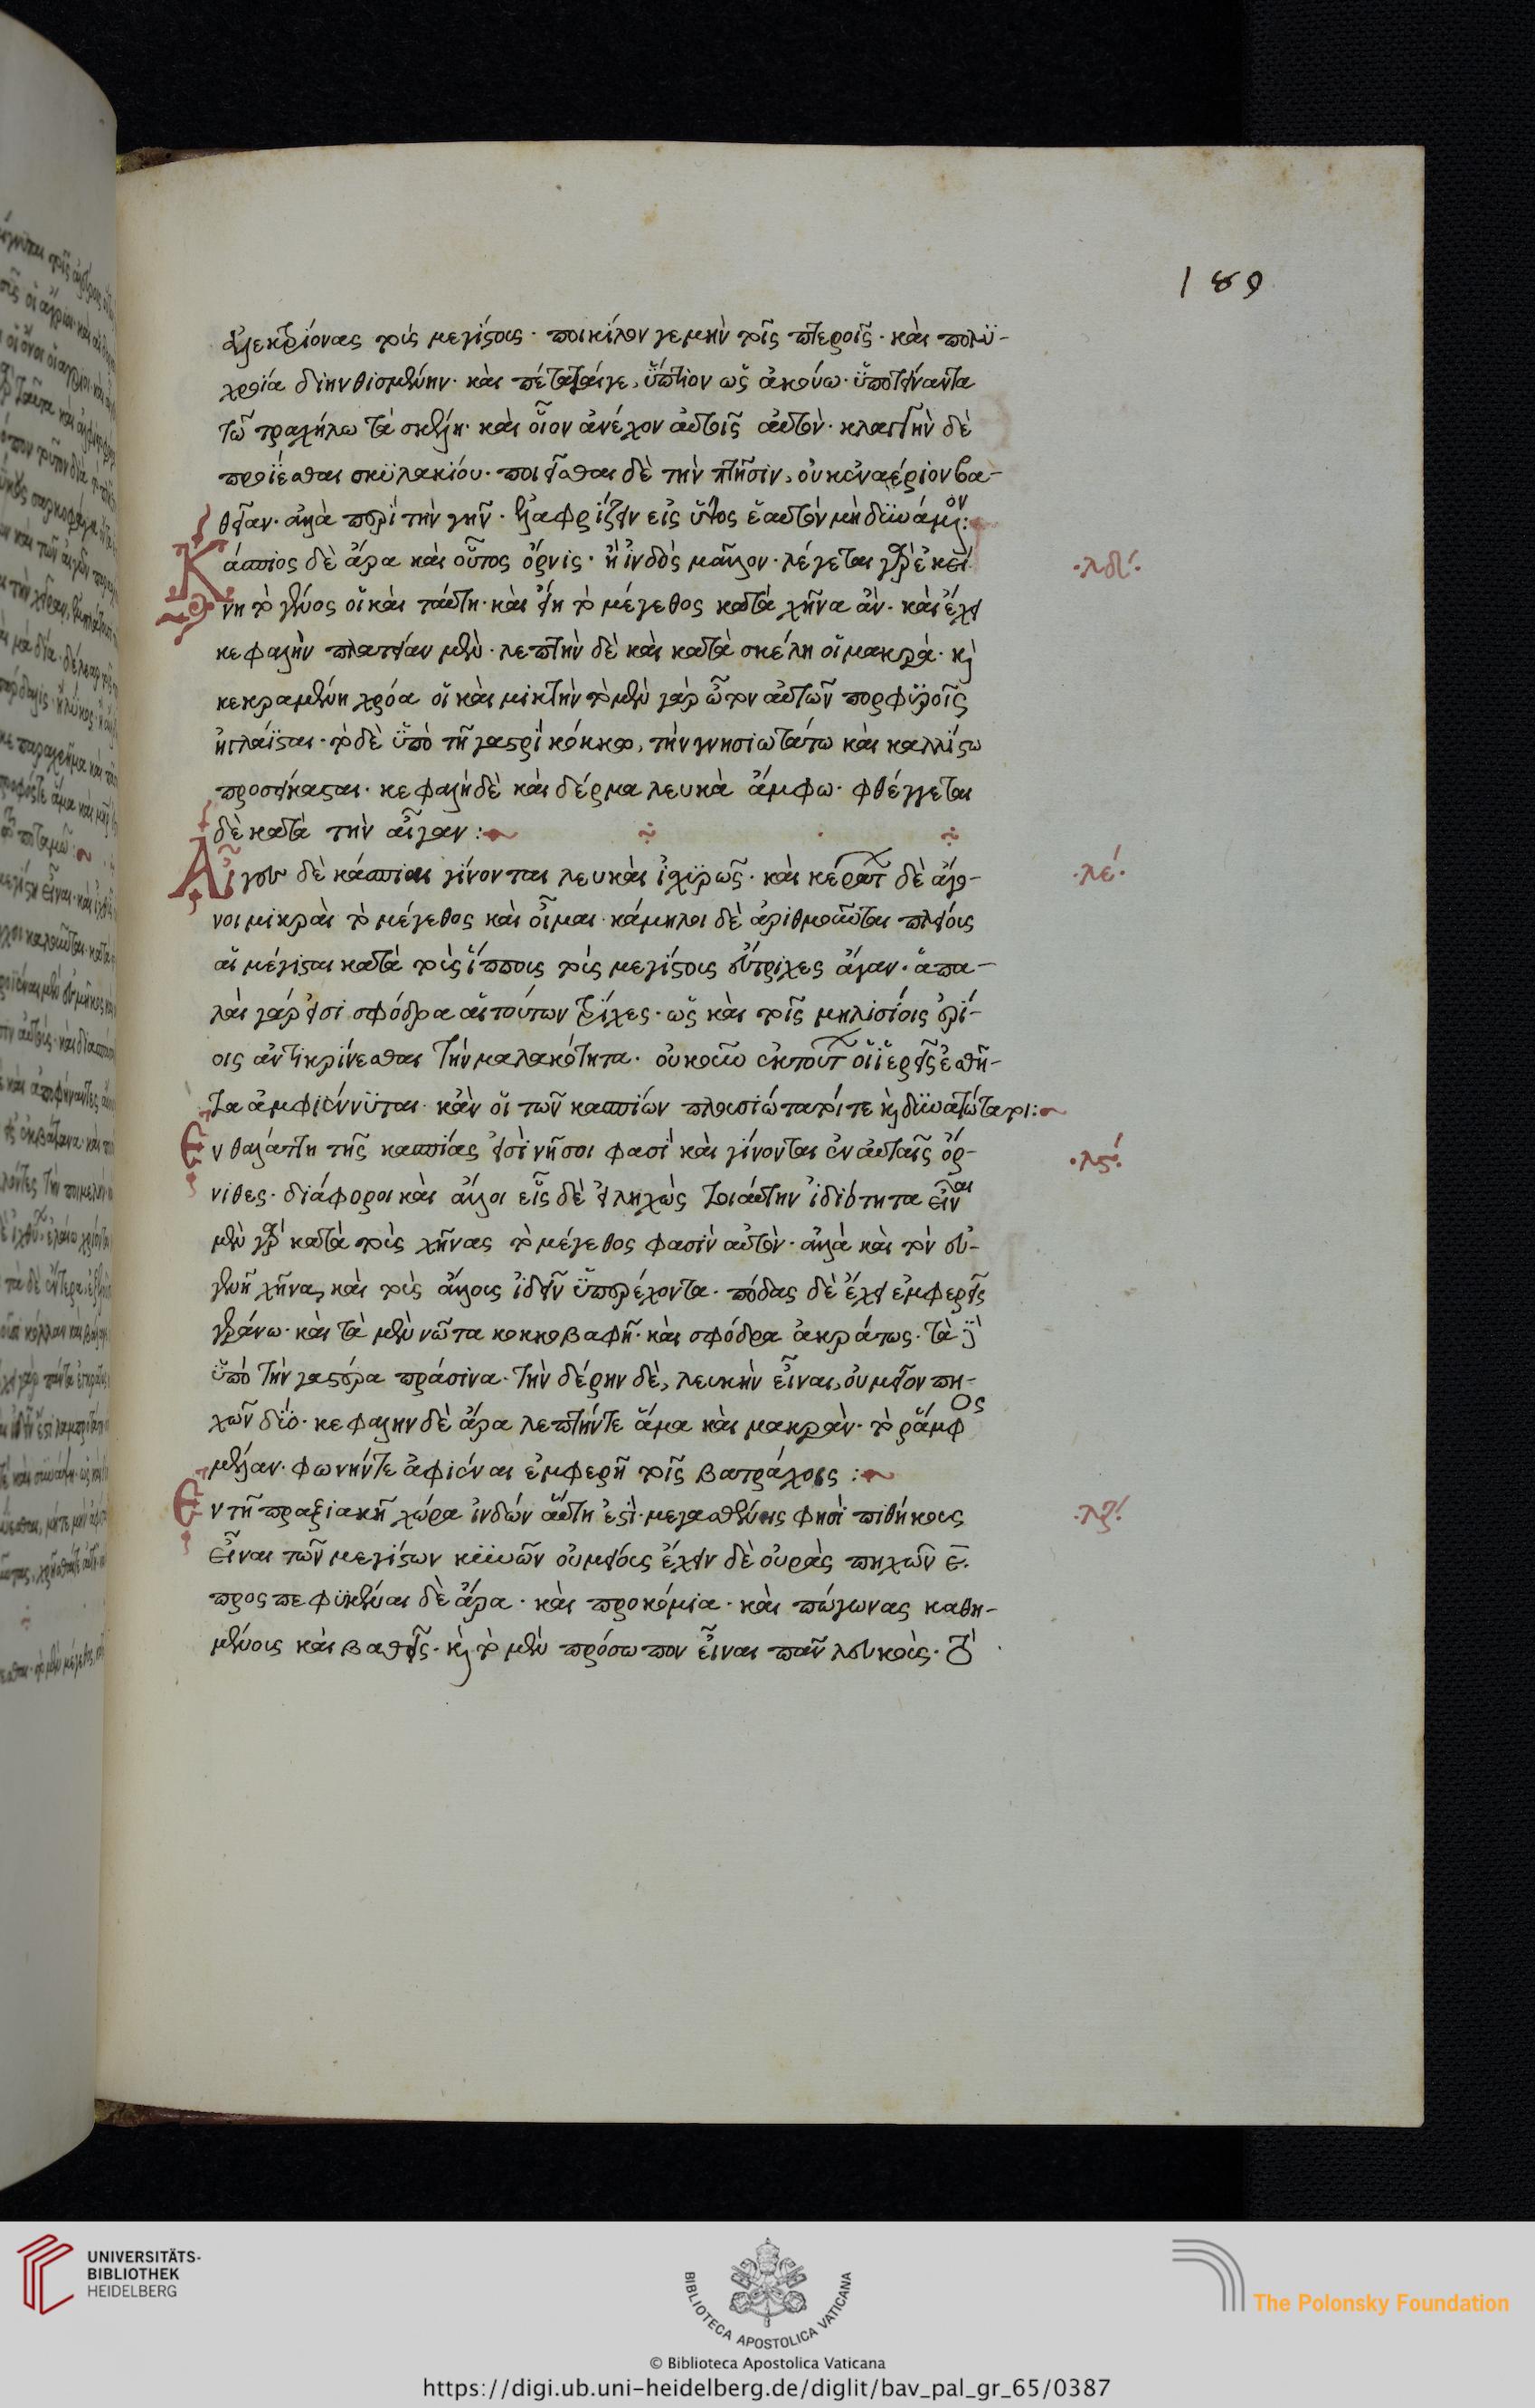 189
ἀλεκτρυόνας τοὺς μεγίστους· ποικίλον γε μὴν τοῖς πτεροῖς· καὶ πολυ-
χροία διηνθισμένην· καὶ πέταται γε, ὕπτιον ὡς ἀκούω· ὑποτείναντα
τῶ τραχήλω τὰ σκέλη· καὶ οἷον ἀνέχον αὐτοῖς αὐτόν· κλαγγὴν δὲ
προΐεσθαι σκυλακίου· ποιεῖσθαι δὲ τὴν πτῆσιν, οὐκ ἐναέριον βα-
θεῖαν· ἀλλὰ περὶ τὴν γῆν· ἐλαφρίζειν εἰς ὕψος ἑαυτὸν μὴ δυνάμενον:
Κάσπιος δὲ ἄρα καὶ οὗτος ὄρνις· ἢ ἰνδὸς μᾶλλον· λέγεται γὰρ ἐκεί
·λδ΄·
νη τὸ γένος οἱ καὶ ταύτη· καὶ εἴη τὸ μέγεθος κατὰ χῆνα ἂν· καὶ ἔχει
κεφαλὴν πλατεῖαν μὲν· λεπτὴν δὲ καὶ κατὰ σκέλη οἱ μακρά· κὶ
κεκραμένη χρόα οἱ καὶ μικτὴν τὸ μὲν γὰρ ὦτον αὐτῶν πορφυροῖς
ἠγλάϊσται· τὸ δὲ ὑπὸ τῆ γαστρὶ κόκκω, τὴν γνησιωτάτω καὶ καλλίστω
προσείκασται· κεφαλὴ δὲ καὶ δέρμα λευκὰ ἄμφω· φθέγγεται
δὲ κατὰ τὴν αἶγαν:
Αἶγες δὲ κάσπιαι γίνονται λευκαὶ ἰσχυρῶς· καὶ κεράτων δὲ ἄγο-
·λε΄·
νοι μικραὶ τὸ μέγεθος καὶ οἶμαι· κάμηλοι δὲ ἀριθμοῦνται πλείους
αἱ μέγισται κατὰ τοὺς ἵππους τοὺς μεγίστους εὔτριχες ἄγαν· ἁπα-
λαὶ γάρ εἰσι σφόδρα αἱ τούτων τρίχες· ὡς καὶ τοῖς μηλισίοις ἐρί-
οις ἀντικρίνεσθαι τὴν μαλακότητα· οὐκοῦν ἐκ τούτων οἱ ἱερεῖς ἐσθῆ-
τα ἀμφιέννυται· κἂν οἱ τῶν κασπίων πλουσιώτατοί τε κὶ δυνατώτατοι:
Ἐν θαλάττη τῆς κασπίας εἰσὶ νῆσοι φασὶ καὶ γίνονται ἐν αὐταῖς ὄρ-
·λς΄·
νιθες· διάφοροι καὶ ἄλλοι εἷς δὲ εἰληχὼς τοιαύτην ἰδιότητα εἶναι
μὲν γὰρ κατὰ τοὺς χῆνας τὸ μέγεθος φασὶν αὐτόν· ἀλλὰ καὶ τὸν εὐ-
γενῆ χῆνας, καὶ τοὺς ἄλλους ἰδεῖν ὑπερέχοντα· πόδας δὲ ἔχει ἐμφερεῖς
γεράνω· καὶ τὰ μὲν νῶτα κοκκοβαφῆ· καὶ σφόδρα ἀκράτως· τὰ δὲ
ὑπὸ τὴν γαστέρα πράσινα· τὴν δέρην δὲ, λευκὴν εἶναι, οὐ μεῖον πη-
χῶν δύο· κεφαλὴν δὲ ἄρα λεπτήν τε ἅμα καὶ μακρὰν· τὸ ῥάμφος
μέλαν· φωνήν τε ἀφιέναι ἐμφερῆ τοῖς βατράχοις:
Ἐν τῆ πραξιακῆ χώρα ἰνδῶν αὕτη ἐστὶ· μεγασθένης φησὶ πιθήκους
·λζ΄·
εἶναι τῶν μεγίστων κυνῶν οὐ μείους ἔχειν δὲ οὐρὰς πηχῶν ε·
προσπεφυκέναι δὲ ἄρα· καὶ προκόμια· καὶ πώγωνας καθη-
μένους καὶ βαθεῖς· κὶ τὸ μὲν πρόσωπον εἶναι πᾶν λευκοὺς· τὸ
UNIVERSITÄTS-
BIBLIOTHEK
HEIDELBERG
BIBLIOTECA APOSTOLICA VATICANA
The Polonsky Foundation
© Biblioteca Apostolica Vaticana
https://digi.ub.uni-heidelberg.de/diglit/bav_pal_gr_65/0387